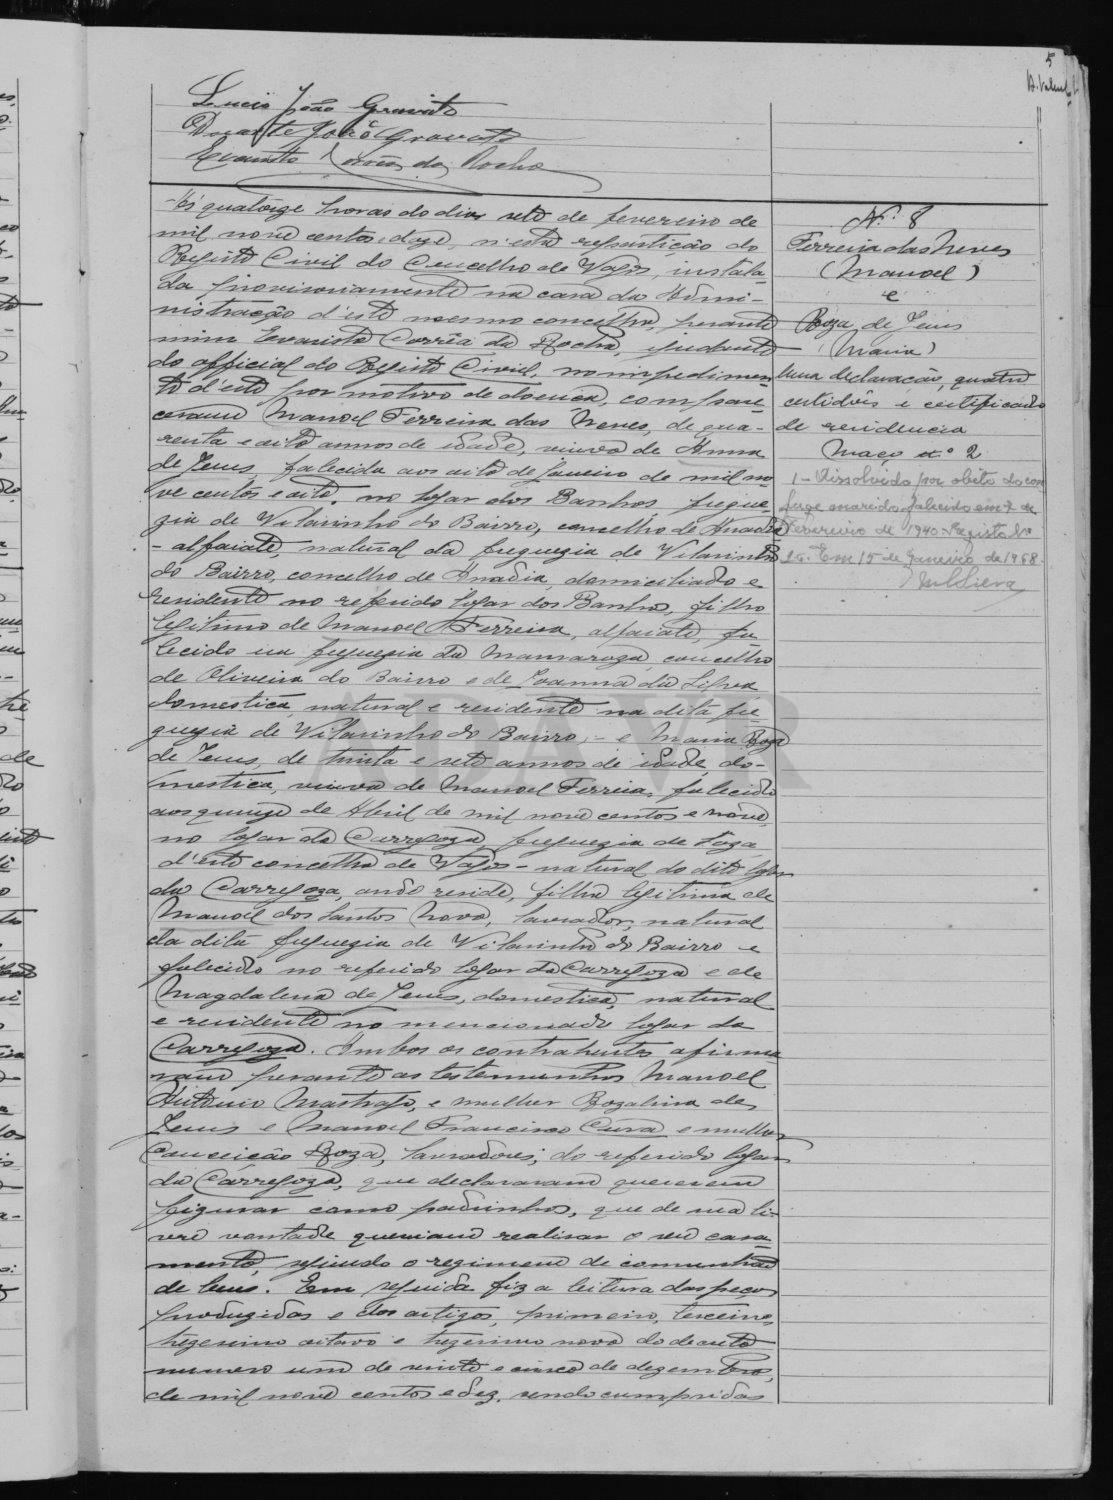 5
Lucio João Gravato
Duarte João Gravato
Evaristo Corrêa da Rocha
Nº 8
Ferreira das Neves
(Manoel)
e
Roza de Jesus
(Maria)
Uma declaração, quatro
certidões e certificado
de residencia
Maço nº 2
1 - Dissolvido por obito do con
juge marido falecido em 7 de
Fevereiro de 1940. Registo Nº
26. Em 15 de Janeiro de 1968.
Silva
Ás quatorze horas do dia sete de fevereiro de
mil nove centos e doze, n'esta repartição do
Registo Civil do Concelho de Vagos, instala-
da provisoriamente na casa da Admi-
nistração d'este mesmo concelho, perante
mim Evaristo Corrêa da Rocha, ajudante
do official do Registo Civil, no impedimen
to d'este por motivo de doença, compare-
ceram Manoel Ferreira das Neves, de qua-
renta e oito annos de idade, viuvo de Anna
de Jesus, falecida aos oito de janeiro de mil no
ve centos e oito, no logar dos Banhos, fregue-
zia de Vilarinho do Bairro, concelho de Anadia
- alfaiate, natural da freguezia de Vilarinho
do Bairro, concelho de Anadia, domiciliado e
residente no referido logar dos Banhos, filho
legitimo de Manoel Ferreira, alfaiate, fa
lecido na freguezia da Mamaroza, concelho
de Oliveira do Bairro e de Joanna da Silva
domestica, natural e residente na dita fre
guezia de Vilarinho do Bairro, - e Maria Roza
de Jesus, de trinta e sete annos de idade, do-
mestica, viuva de Manoel Ferreira, falecido
aos quinze de Abril de mil nove centos e nove,
no logar da Carregoza, freguezia de Soza
d'este concelho de Vagos - natural do dito logar
da Carregoza, onde reside, filha legitima de
Manoel dos Santos Novo, lavrador, natural
da dita freguezia de Vilarinho do Bairro e
falecido no referido logar da Carregoza e de
Magdalena de Jesus, domestica, natural
e residente no mencionado logar da
Carregoza. Ambos os contrahentes afirma
ram perante as testemunhas Manoel
Antonio e mulher Rozalina de
Jesus e Manoel Francisco Cura e mulher
Conceição Roza, lavradores, do referido logar
da Carregoza, que declararam quererem
figurar como padrinhos, que de sua li-
vre vontade queriam realisar o seu casa-
mento segundo o regimen de comunhão
de bens. Em seguida fiz a leitura das peças
produzidas e dos artigos, primeiro, terceiro,
trigesimo oitavo e trigesimo nono do decreto
numero um de vinte e cinco de dezembro
de mil nove centos e dez, sendo cumpridas
ADAVR